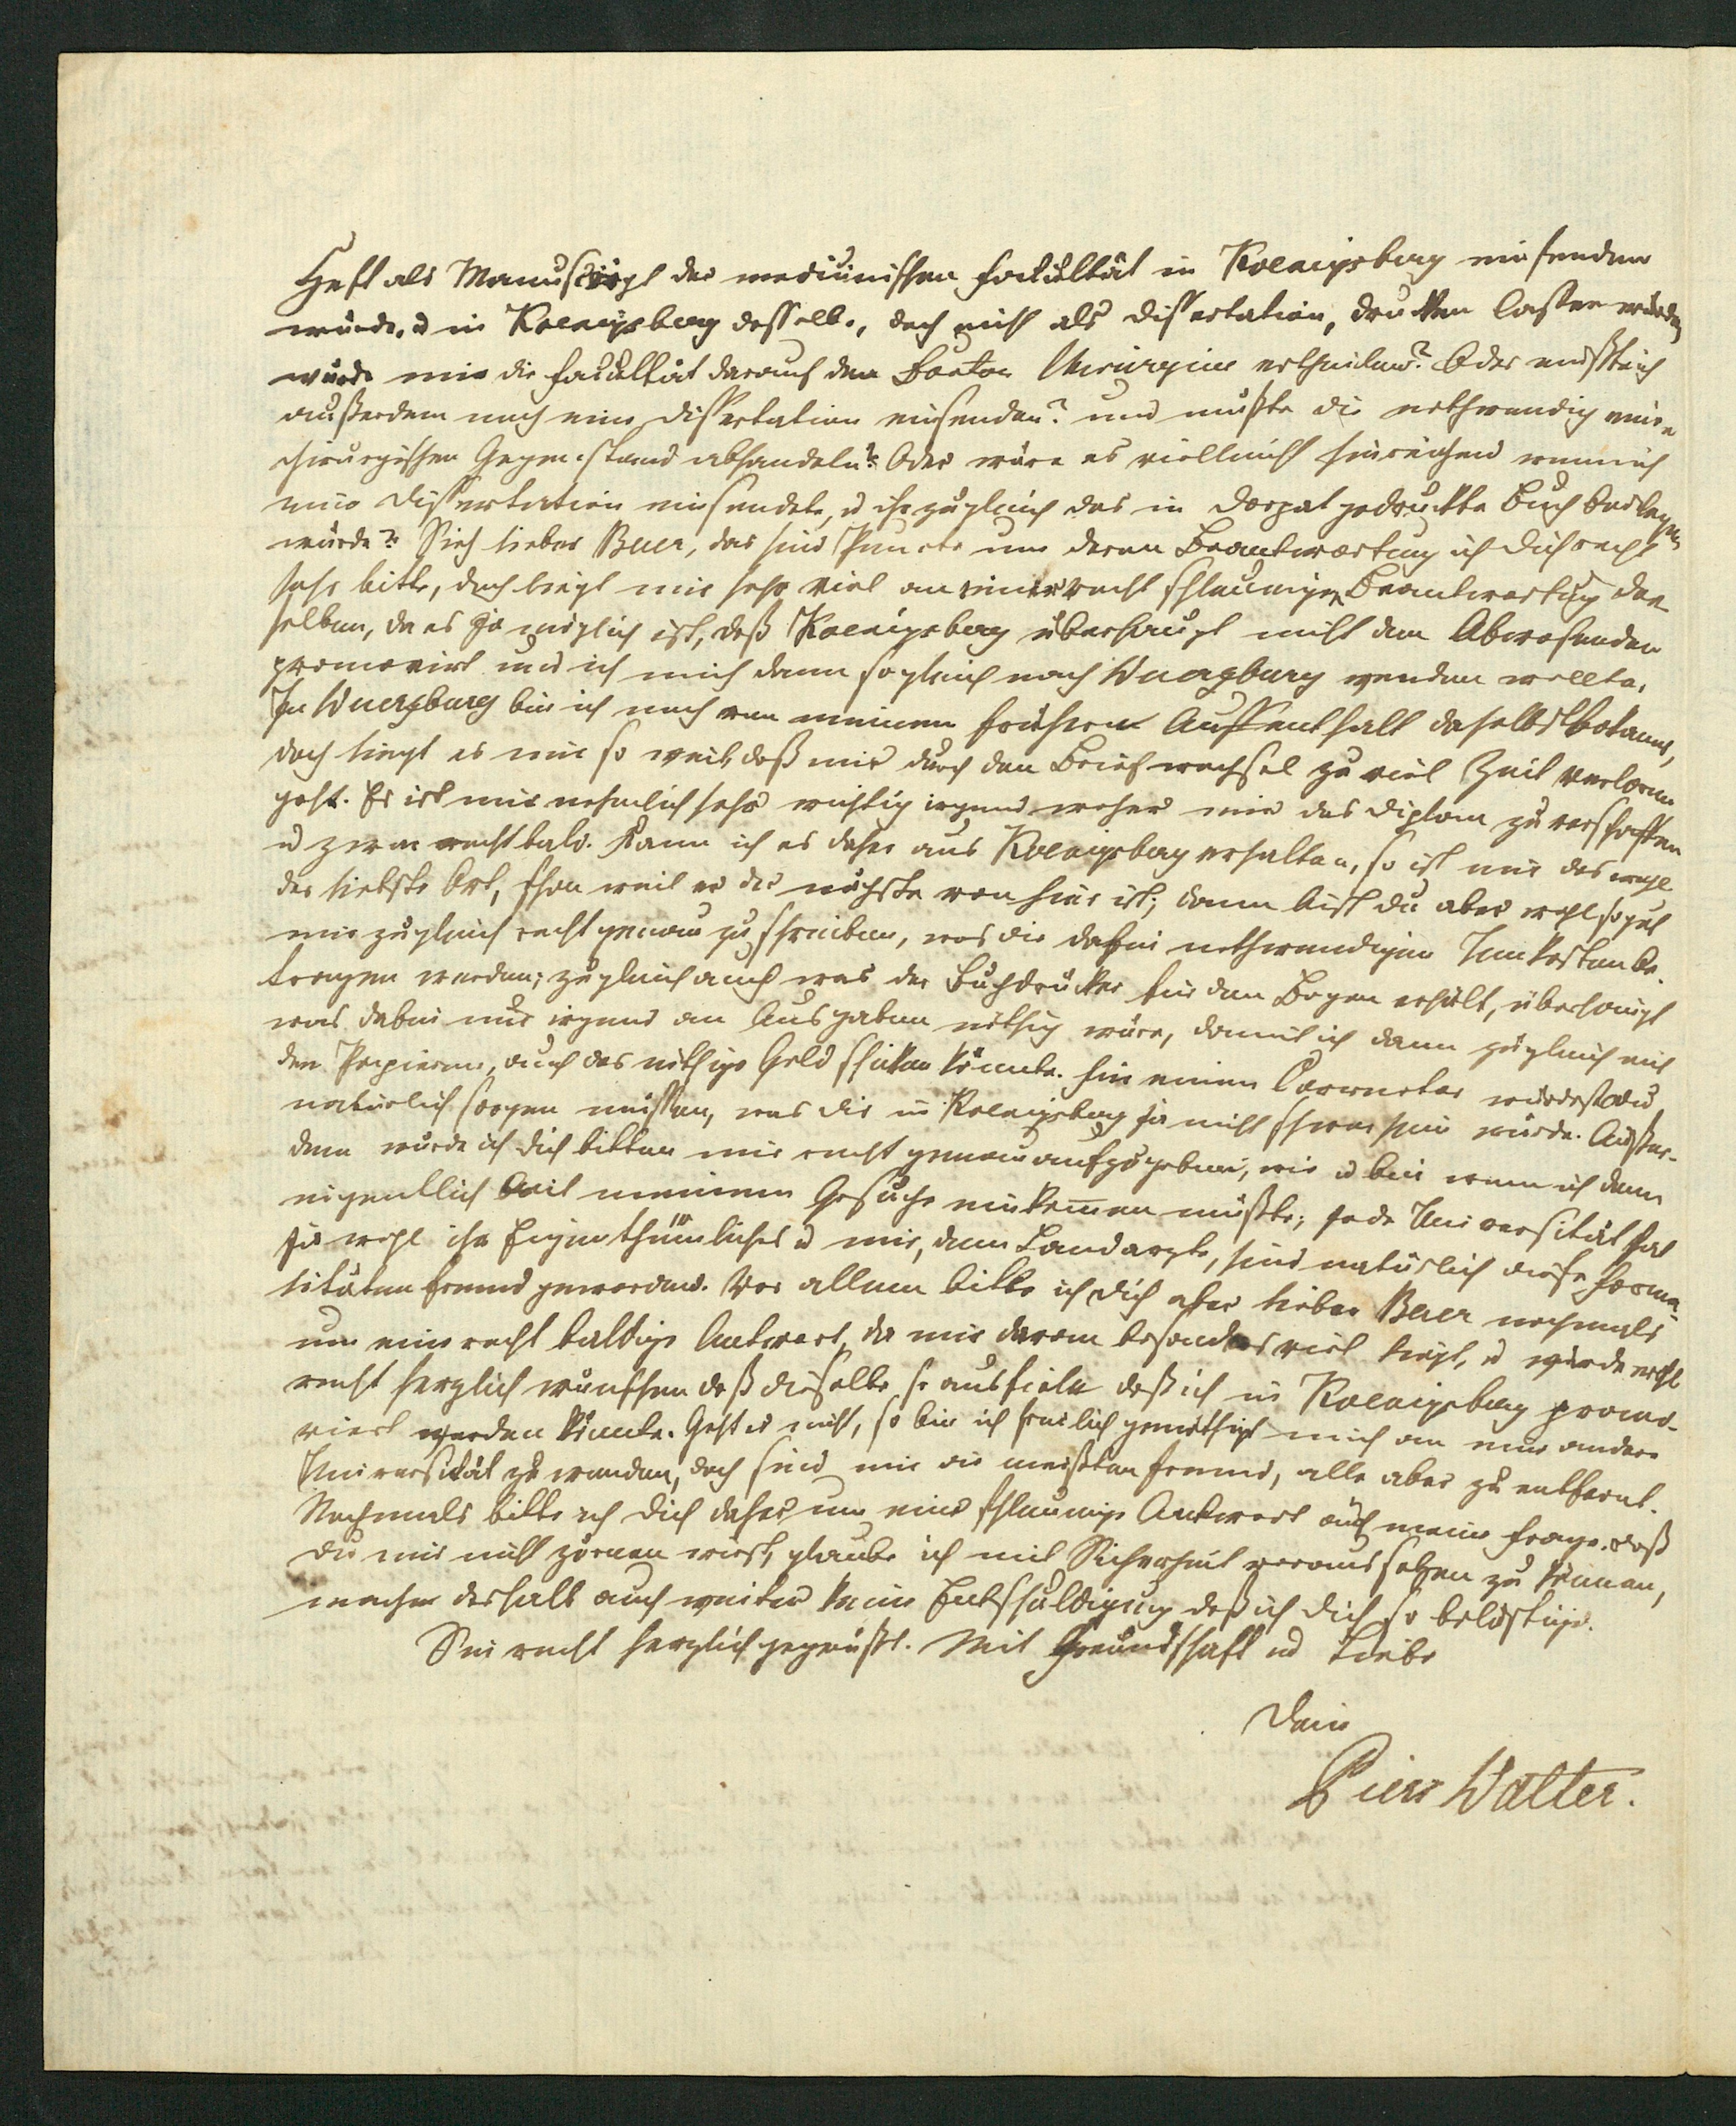 Heft als Manuscript der medicinischen Facultät in Koenigsberg einsenden
würde, u in Koenigsberg dasselbe, doch nicht als Dissertation, drucken lassen würde,
würde mir die Facultät darauf den Doctor Chirurgiae ertheilen? Oder müßte ich
außerdem noch eine Dissertation einsenden? und müßte die nothwendig einen
chirurgischen Gegenstand abhandeln? Oder wäre es vielleicht hinreichend wenn ich
eine Dissertation einsendete, u ihr zugleich das in Dorpat gedruckte Buch beilegen
würde? Sieh lieber Baer, das sind Puncte um deren Beantwortung ich Dich recht
sehr bitte, doch liegt mir sehr viel an einer recht schleunigen Beantwortung der-
selben, da es ja möglich ist, daß Koenigsberg überhaupt nicht den Abwesenden
promovirt und ich mich dann sogleich nach Wuerzburg wenden wollte.
In Wuerzburg bin ich noch von meinem frühern Auffenthalt daselbst bekannt,
doch liegt es mir so weit, daß mir durch den Briefwechsel zu viel Zeit verloren
geht. Es ist mir nehmlich sehr wichtig irgend woher mir das Diplom zu verschaffen
u zwar recht bald. Kann ich es daher aus Koenigsberg erhalten, so ist mir das wohl
der liebste Ort, schon weil er der nächste von hier ist; dann bist Du aber wohl so gut
mir zugleich recht genau zu schreiben, was die dabei nothwendigen Unkosten be-
tragen werden; zugleich auch was der Buchdrucker für den Bogen erhält, überhaupt
was dabei nur irgend an Ausgaben nöthig wäre, damit ich dann zugleich mit
den Papieren, auch das nöthige Geld schicken könnte. Für einen Correctar würdest Du
natürlich sorgen müssen, was Dir in Koenigsberg ja nicht schwer sein würde. Außer-
dem würde ich Dich bitten mir recht genau aufzugeben, wie u bei wem ich denn
eigentlich mit meinem Gesuche einkommen müßte; jede Universität hat
ja wohl ihr Eigenthümliches u mir, dem Landarzte, sind natürlich diese Forma-
litäten fremd geworden. Vor allem bitte ich Dich aber lieber Baer nochmals
um eine recht baldige Antwort, da mir daran besonders viel liegt, u würde wohl
recht herzlich wünschen daß dieselbe so ausfiele daß ich in Koenigsberg promo-
virt werden könnte. Geht es nicht, so bin ich freilich genöthigt mich an eine andere
Universität zu wenden, doch sind mir die meisten fremd, alle aber zu entfernt.
Nochmals bitte ich Dich daher um eine schleunige Antwort auf meine Frage. Daß
Du mir nicht zürnen wirst, glaube ich mit Sicherheit voraussetzen zu können,
mache deshalb auch weiter keine Entschuldigung daß ich Dich so belästige.
Sei recht herzlich gegrüßt. Mit Freundschaft und Liebe
Dein
Piers Walter.